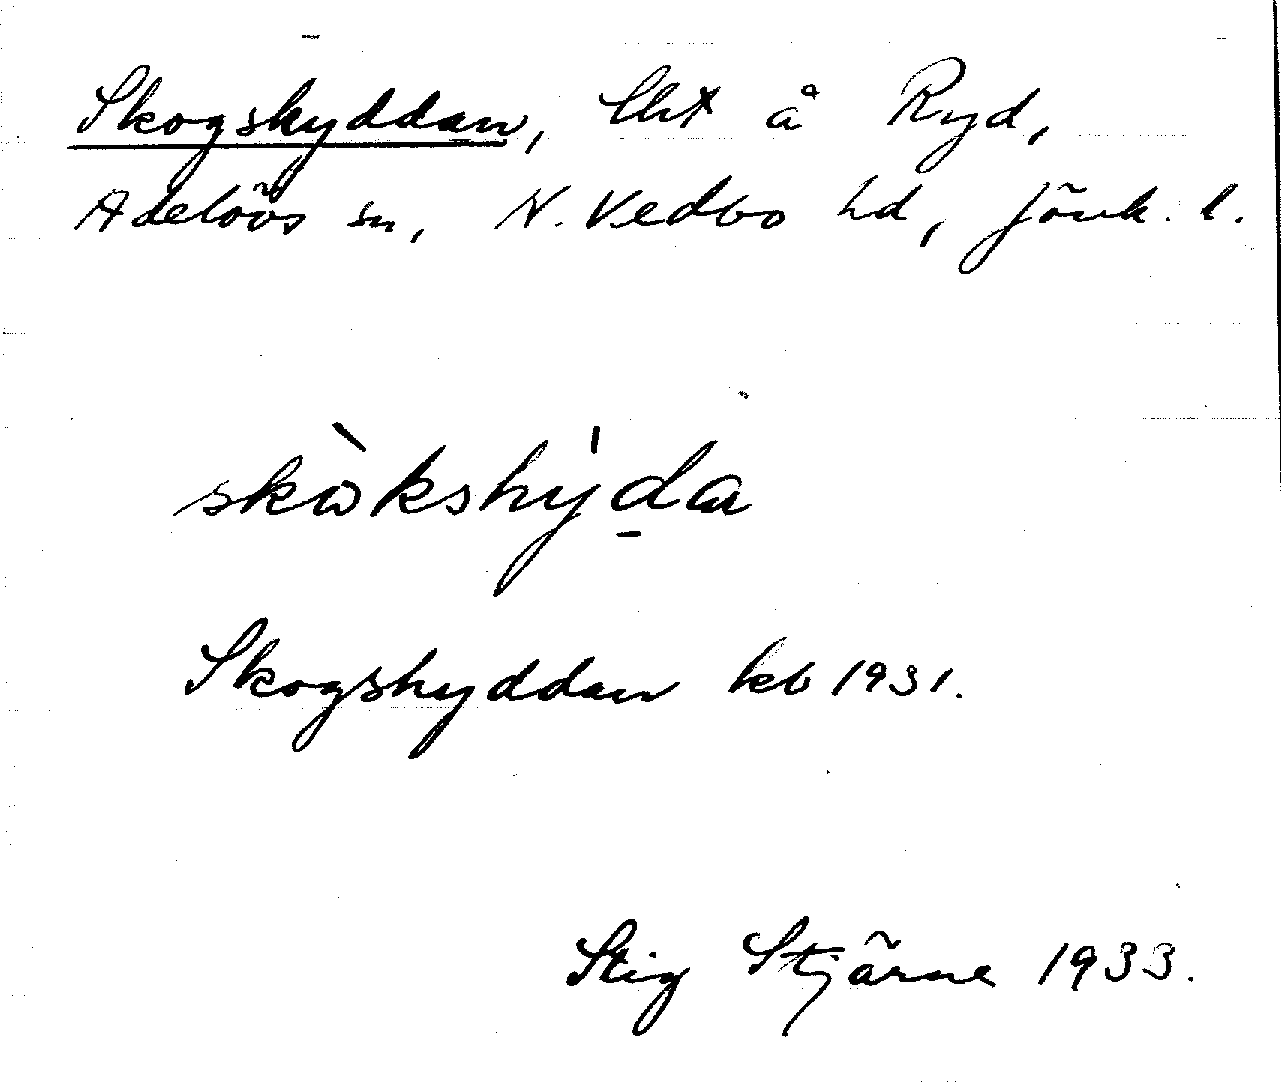 Skogshyddan, lht å Ryd,
Adelövs sn, N. Vedbo hd, Jönk. l.
skòkshy̍da
Skogshyddan kb 1931.
Stig Stjärne 1933.